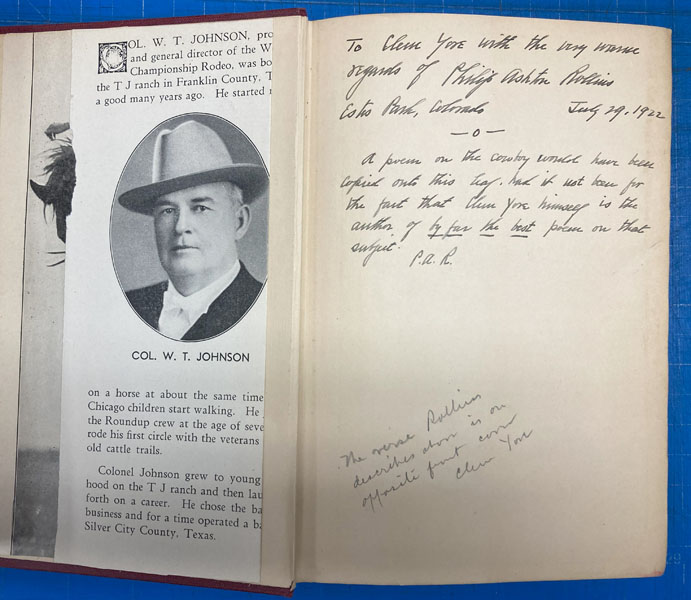 COL. W. T. JOHNSON, pro
and general director of the W
Championship Rodeo, was bo
the T J ranch in Franklin County, T
a good many years ago. He started
COL. W. T. JOHNSON
on a horse at about the same time
Chicago children start walking. He
the Roundup crew at the age of seve
rode his first circle with the veterans
old cattle trails.
Colonel Johnson grew to young
hood on the T J ranch and then lau
forth on a career. He chose the ba
business and for a time operated a ba
Silver City County, Texas.
To Clem Yore with the very warm
regards of Philip Ashton Rollins
Estes Park, Colorado July 29, 1922
—o—
A poem on the cowboy would have been
copied onto this leaf, had it not been for
the fact that Clem Yore himself is the
author of by far the best poem on that
subject.
P.A.R.
The verse Rollins
describes above is on
opposite front cover
Clem Yore